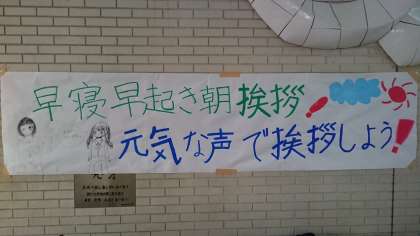 早寝早起き朝挨拶!
元気な声で挨拶しよう!